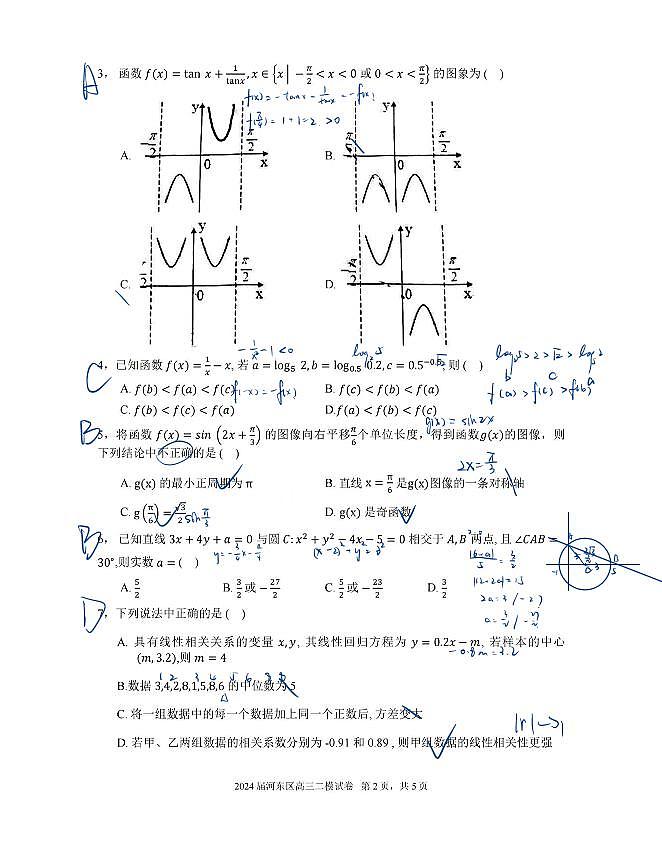 A 3， 函数 f(x) = tan x + 1/tanx , x ∈ {x | −π/2 < x < 0 或 0 < x < π/2} 的图象为 ( )
f(π/4) = 1+1=2 >0
A.
B.
y
π/2
0
x
C.
D.
y
π/2
0
x
C 4， 已知函数 f(x) = 1/x − x, 若 a = log₅ 2, b = log₀.₅ 0.2, c = 0.5^−0.5, 则 ( )
A. f(b) < f(a) < f(c) f(-x) = -f(x)
B. f(c) < f(b) < f(a)
C. f(b) < f(c) < f(a)
D. f(a) < f(b) < f(c)
f(a) > f(c) > f(b)
g(x) = sin2x
B 5， 将函数 f(x) = sin (2x + π/3) 的图像向右平移 π/6 个单位长度， 得到函数g(x)的图像，则
下列结论中不正确的是 ( )
2x = π/3
A. g(x) 的最小正周期为 π
B. 直线 x = π/6 是g(x)图像的一条对称轴
C. g(π/6) = √3/2 sin π/3
D. g(x) 是奇函数
B 6， 已知直线 3x + 4y + a = 0 与圆 C: x² + y² − 4x − 5 = 0 相交于 A, B 两点, 且 ∠CAB =
30°,则实数 a = ( )
A. 5/2
B. 3/2 或 − 27/2
C. 5/2 或 − 23/2
D. 3/2
D 7， 下列说法中正确的是 ( )
A. 具有线性相关关系的变量 x, y, 其线性回归方程为 y = 0.2x − m, 若样本的中心
(m, 3.2),则 m = 4
-0.8m = 3.2
B.数据 3,4,2,8,1,5,8,6 的中位数为 5
C. 将一组数据中的每一个数据加上同一个正数后, 方差变大
|r|→1
D. 若甲、乙两组数据的相关系数分别为 -0.91 和 0.89 , 则甲组数据的线性相关性更强
2024 届河东区高三二模试卷 第 2 页，共 5 页